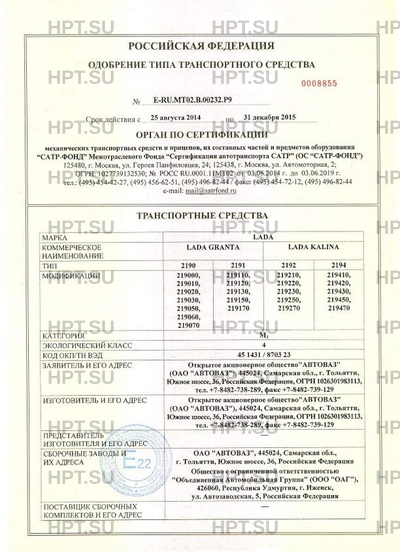 РОССИЙСКАЯ ФЕДЕРАЦИЯ
ОДОБРЕНИЕ ТИПА ТРАНСПОРТНОГО СРЕДСТВА
0008855
№ E-RU.MT02.B.00232.P9
Срок действия с 25 августа 2014 по 31 декабря 2015
ОРГАН ПО СЕРТИФИКАЦИИ
механических транспортных средств и прицепов, их составных частей и предметов оборудования
"САТР-ФОНД" Межотраслевого Фонда "Сертификация автотранспорта САТР" (ОС "САТР-ФОНД")
125480, г. Москва, ул. Героев Панфиловцев, 24; 125438, г. Москва, ул. Автомоторная, 2;
ОГРН 1027739132530; № РОСС RU.0001.11МТ02 от 03.06.2014 г. до 03.06.2019 г.
тел.: (495) 454-42-27, (495) 456-62-51, (495) 496-82-44 / факс: (495) 454-72-12, (495) 496-82-44
e-mail: mail@satrfond.ru
ТРАНСПОРТНЫЕ СРЕДСТВА
МАРКА LADA
КОММЕРЧЕСКОЕ НАИМЕНОВАНИЕ LADA GRANTA LADA KALINA
ТИП 2190 2191 2192 2194
МОДИФИКАЦИИ 219000, 219110, 219210, 219410,
219010, 219120, 219220, 219420,
219020, 219130, 219230, 219430,
219030, 219150, 219250, 219450,
219050, 219170 219270 219470
219060,
219070
КАТЕГОРИЯ M1
ЭКОЛОГИЧЕСКИЙ КЛАСС 4
КОД ОКП/ТН ВЭД 45 1431 / 8703 23
ЗАЯВИТЕЛЬ И ЕГО АДРЕС Открытое акционерное общество "АВТОВАЗ"
(ОАО "АВТОВАЗ"), 445024, Самарская обл., г. Тольятти,
Южное шоссе, 36, Российская Федерация, ОГРН 1026301983113,
тел. +7-8482-738-289, факс +7-8482-739-129
ИЗГОТОВИТЕЛЬ И ЕГО АДРЕС Открытое акционерное общество "АВТОВАЗ"
(ОАО "АВТОВАЗ"), 445024, Самарская обл., г. Тольятти,
Южное шоссе, 36, Российская Федерация, ОГРН 1026301983113,
тел. +7-8482-738-289, факс +7-8482-739-129
ПРЕДСТАВИТЕЛЬ ИЗГОТОВИТЕЛЯ И ЕГО АДРЕС —
СБОРОЧНЫЕ ЗАВОДЫ И ИХ АДРЕСА ОАО "АВТОВАЗ", 445024, Самарская обл.,
г. Тольятти, Южное шоссе, 36, Российская Федерация
Общество с ограниченной ответственностью
"Объединенная Автомобильная Группа" (ООО "ОАГ"),
426060, Республика Удмуртия, г. Ижевск,
ул. Автозаводская, 5, Российская Федерация
ПОСТАВЩИК СБОРОЧНЫХ КОМПЛЕКТОВ И ЕГО АДРЕС —
E22
HPT.SU